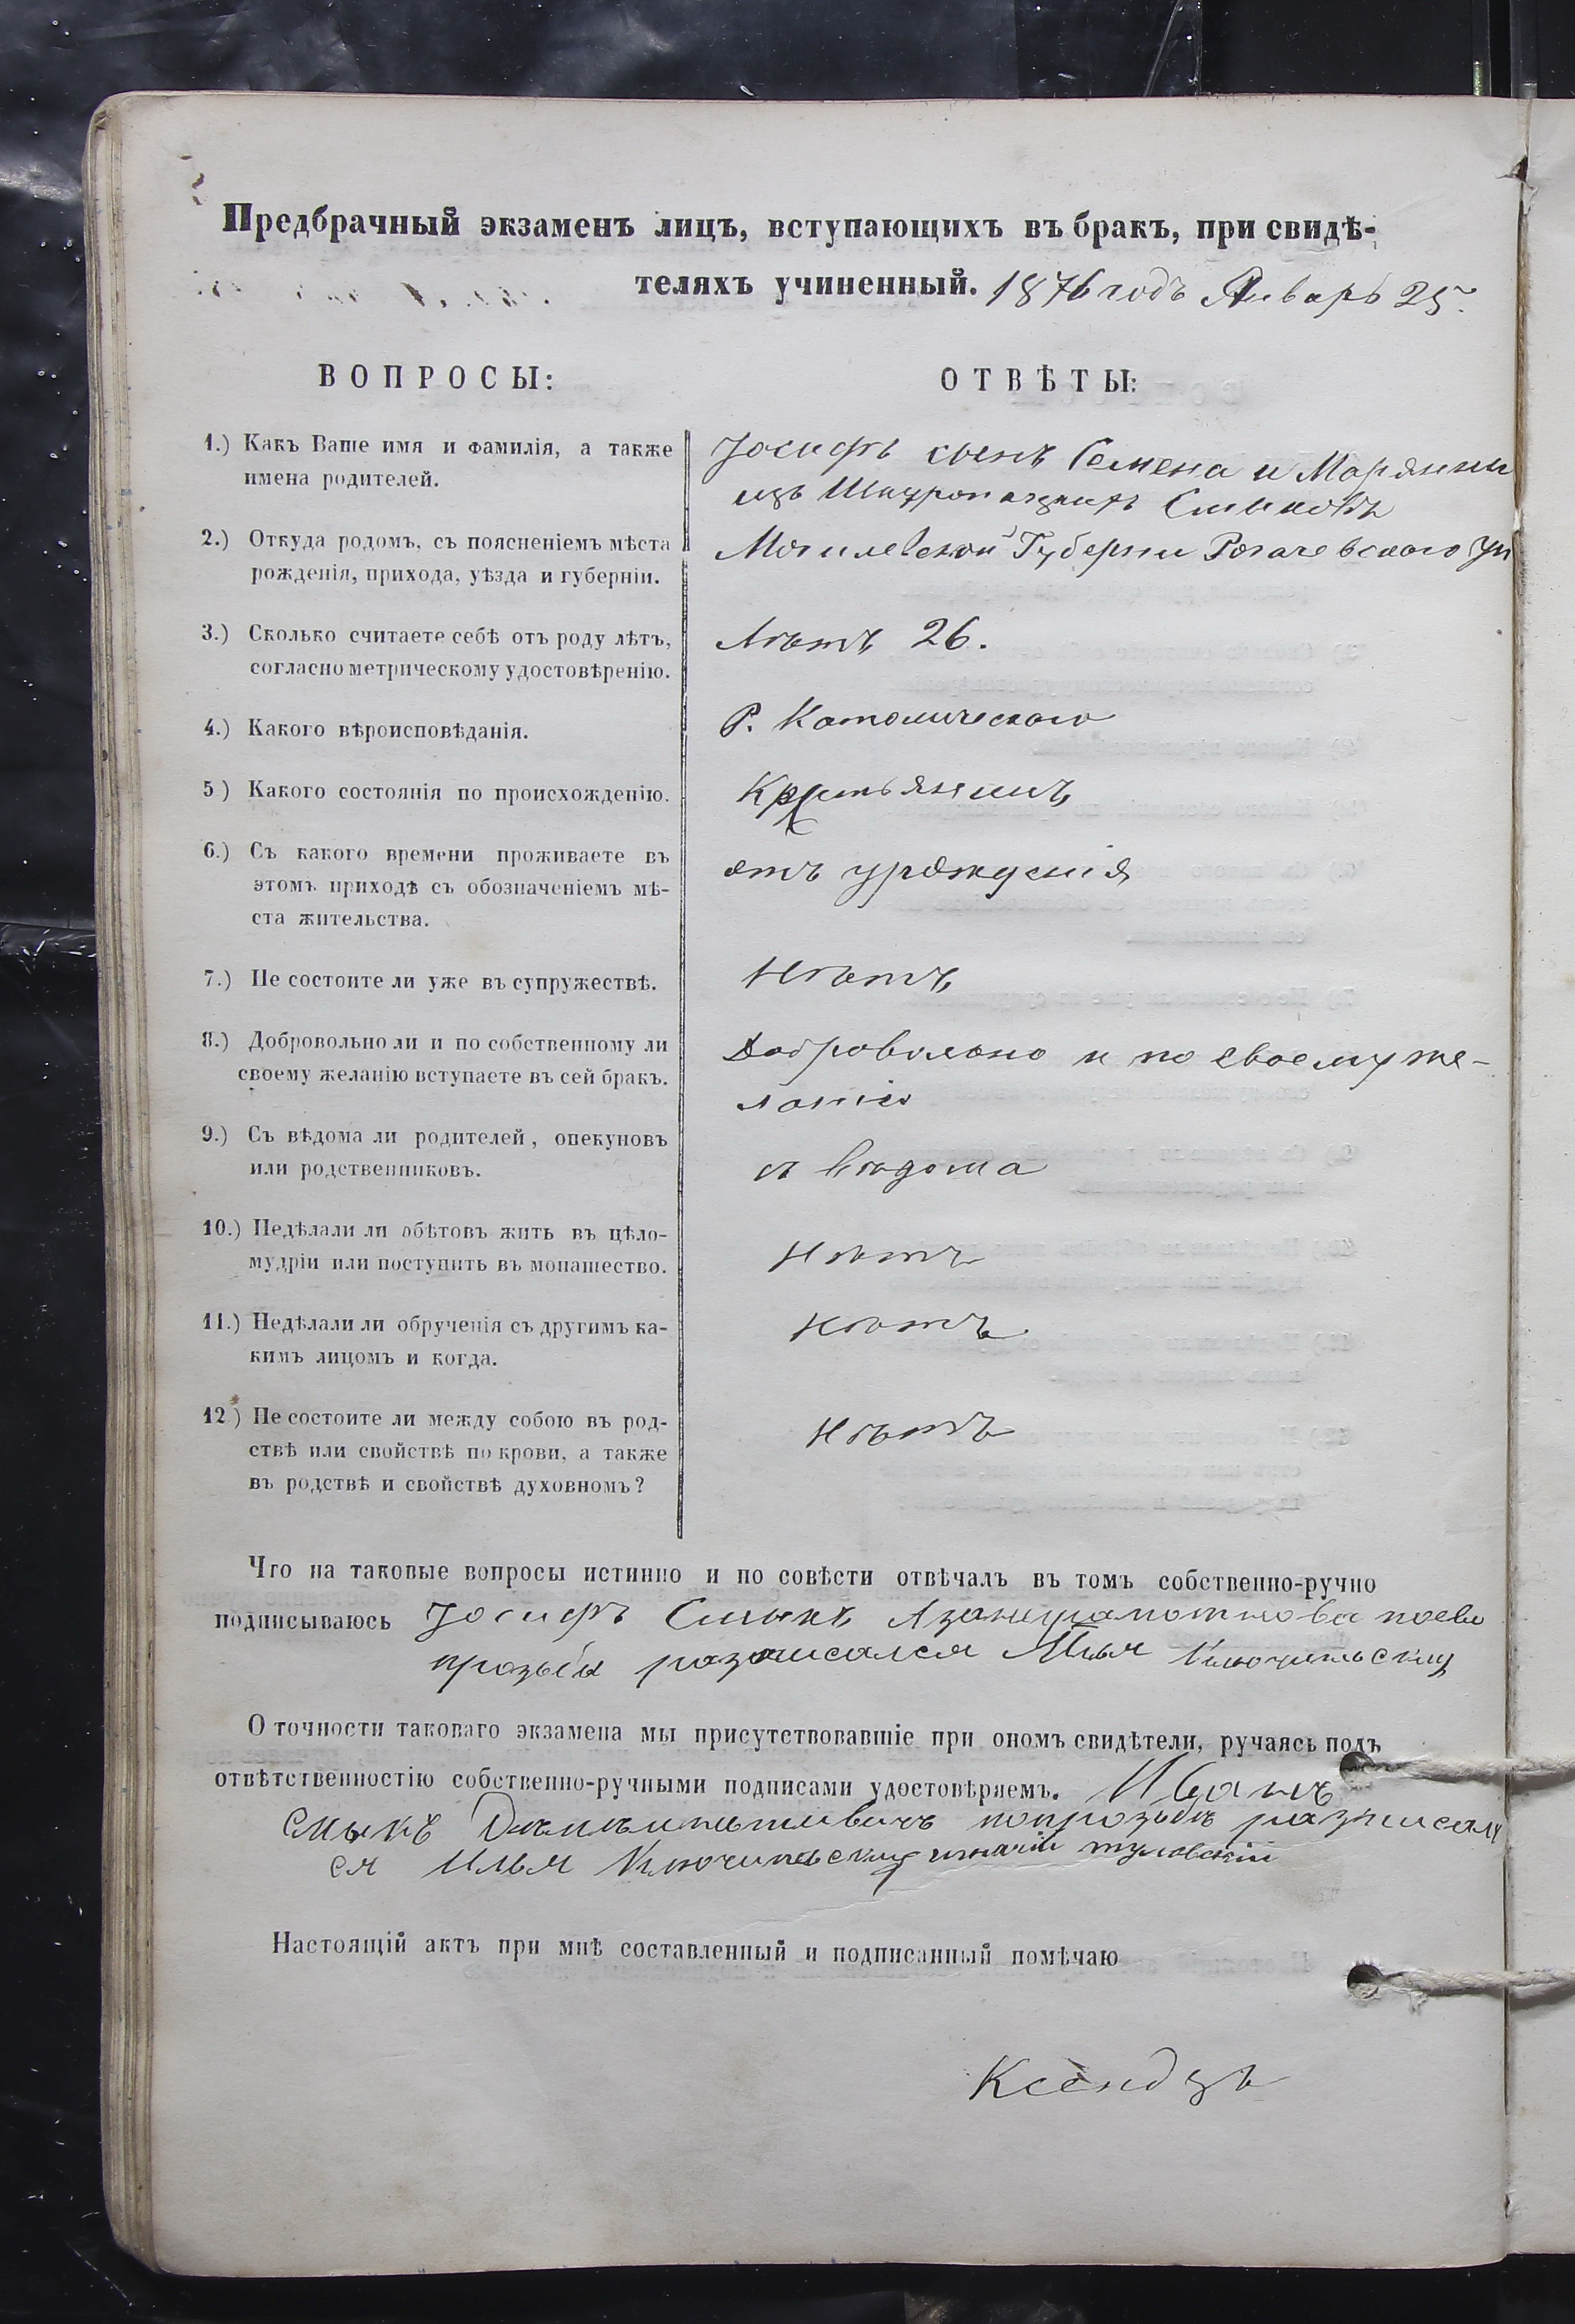 Предбрачный экзаменъ лицъ, вступающихъ въ бракъ, при свидѣ-
теляхъ учиненный. 1876 годъ Январь 25.
ВОПРОСЫ:
ОТВѢТЫ:
1.) Какъ Ваше имя и фамилія, а также
имена родителей.
Іосифъ сынъ Семена и Марянны
изъ Смыковъ
2.) Откуда родомъ, съ поясненіемъ мѣста
рожденія, прихода, уѣзда и губерніи.
Могилевской Губерни Рогачевского
3.) Сколько считаете себѣ отъ роду лѣтъ,
согласно метрическому удостовѣренію.
Лѣтъ 26.
4.) Какого вѣроисповѣданія.
Р. Католического
5) Какого состоянія по происхожденію.
Крстьянинъ
6.) Съ какого времени проживаете въ
этомъ приходѣ съ обозначеніемъ мѣ-
ста жительства.
отъ урожденія
7.) Не состоите ли уже въ супружествѣ.
Нѣтъ
8.) Добровольно ли и по собственному ли
своему желанію вступаете въ сей бракъ.
Добровольно и по своему же-
ланію
9.) Съ вѣдома ли родителей, опекуновъ
или родственниковъ.
съ вѣдома
10.) Недѣлали ли обѣтовъ жить въ цѣло-
мудріи или поступить въ монашество.
Нѣтъ
11.) Недѣлали ли обрученія съ другимъ ка-
кимъ лицомъ и когда.
Нѣтъ
12) Не состоите ли между собою въ род-
ствѣ или свойствѣ по крови, а также
въ родствѣ и свойствѣ духовномъ?
Нѣтъ
Что на таковые вопросы истинно и по совѣсти отвѣчалъ въ томъ собственно-ручно
подписываюсь Іосифъ Смыкъ
прозьбы Илья
О точности таковаго экзамена мы присутствовавшіе при ономъ свидѣтели, ручаясь подъ
отвѣтственностію собственно-ручными подписами удостовѣряемъ. Иванъ
Смыкъ попрозьбѣ
ся Илья
Настоящій актъ при мнѣ составленный и подписанный помѣчаю
Ксендзъ